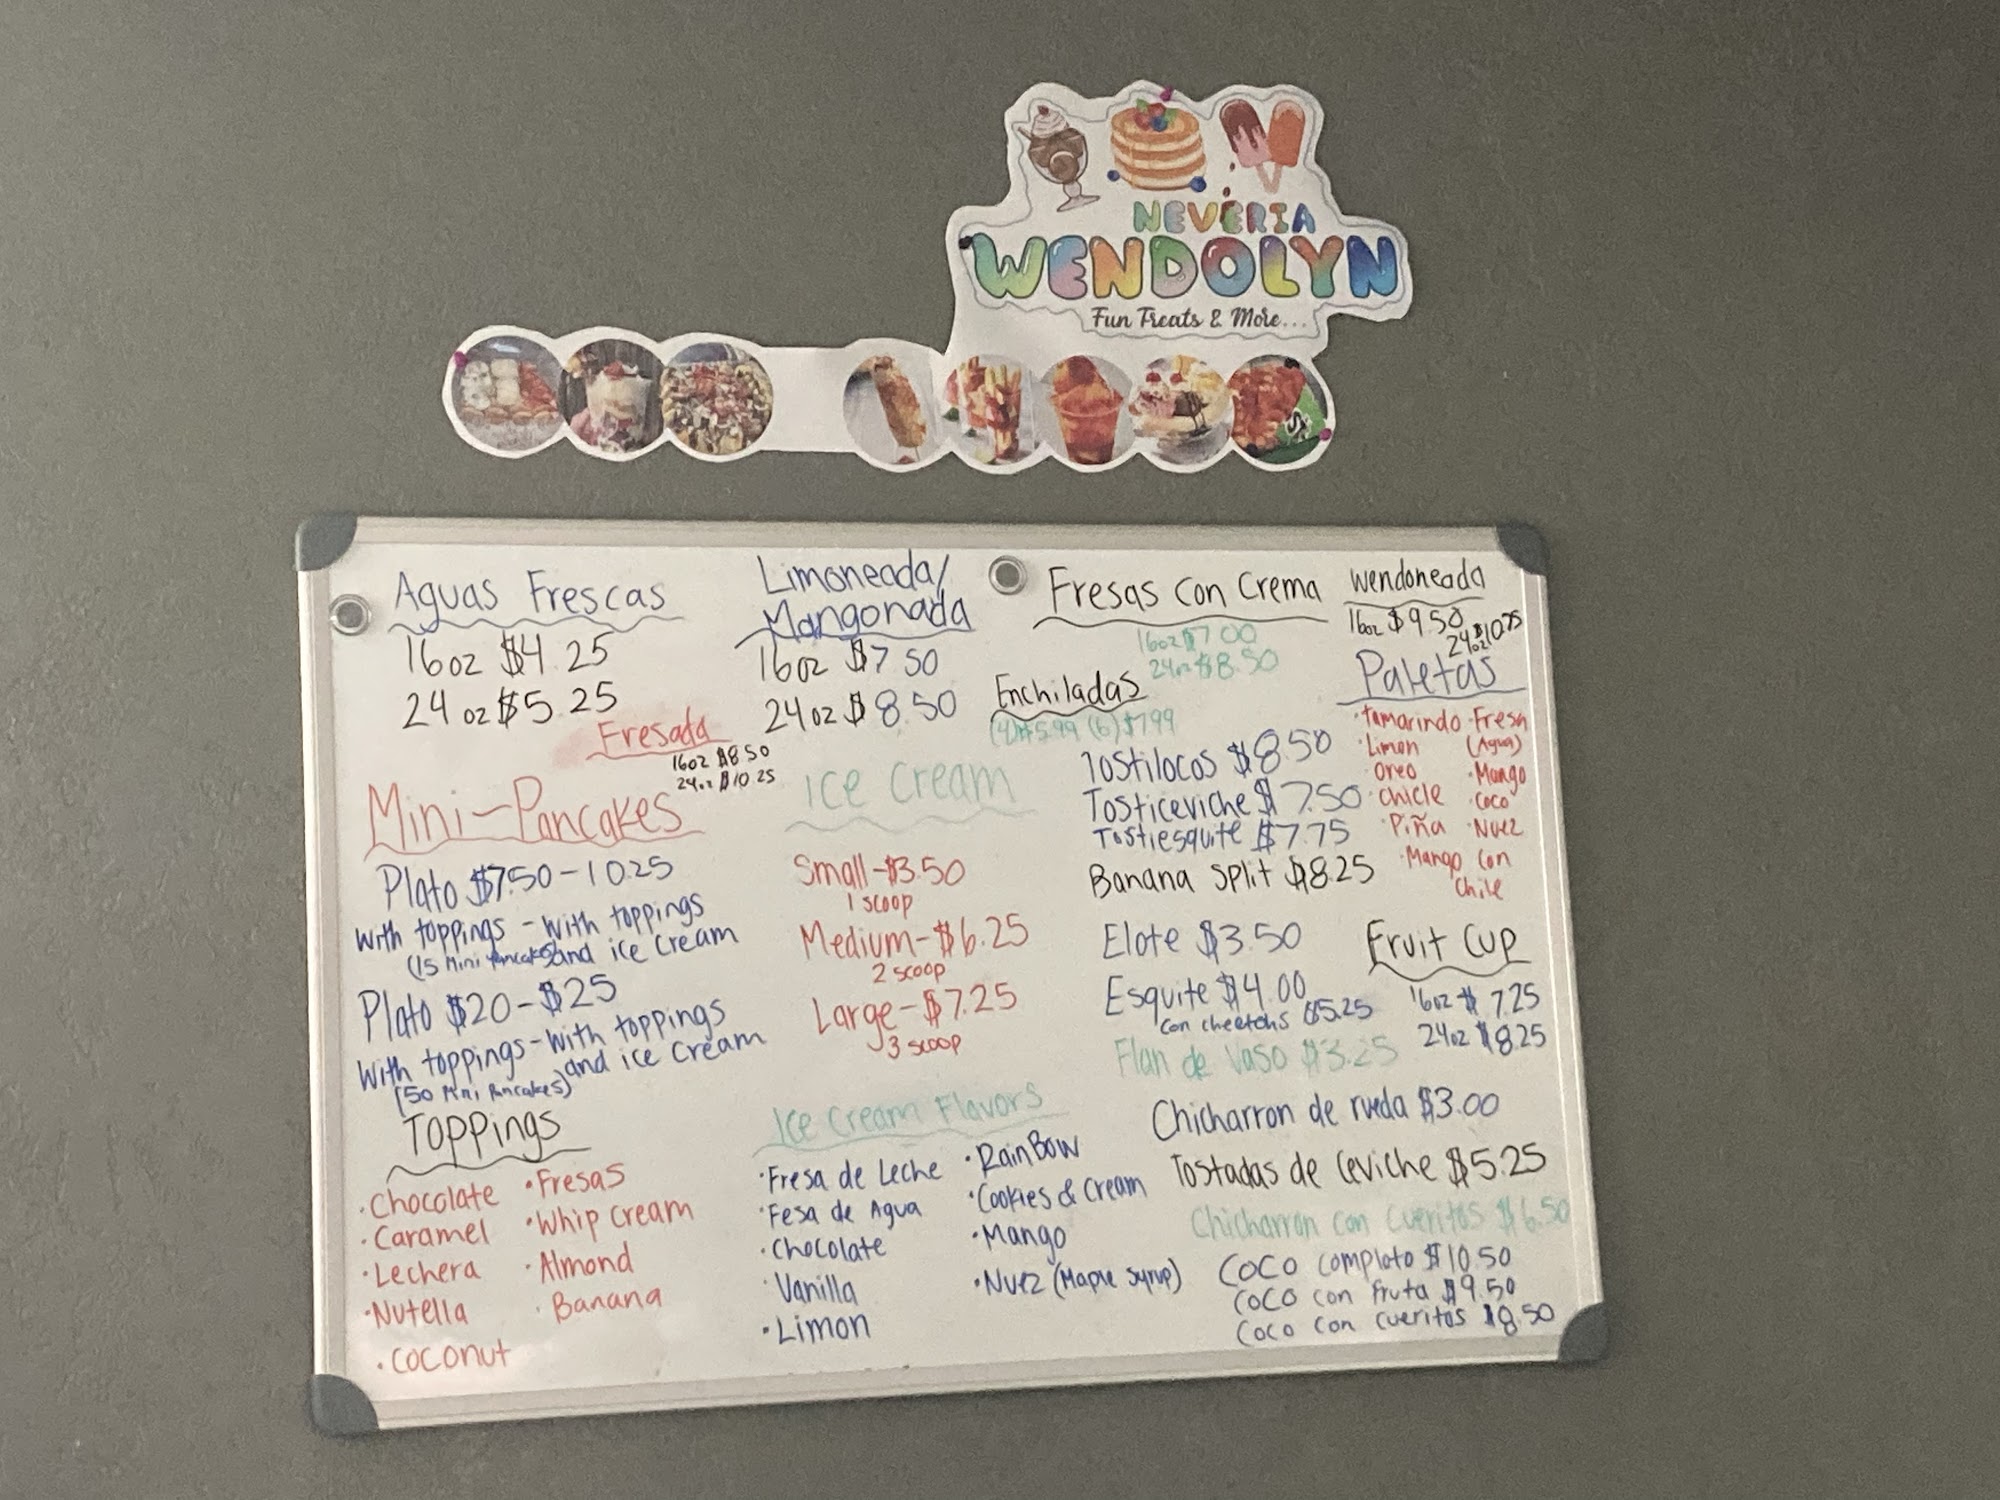 NEVERIA
WENDOLYN
Fun Treats & More...
Aguas Frescas
16oz $4.25
24oz $5.25
Fresada
16oz $8.50
24oz $10.25
Limoneada/
Mangonada
16oz $7.50
24oz $8.50
Fresas con Crema
16oz $7.00
24oz $8.50
Wendoneada
16oz $9.50
24oz $10.75
Enchiladas
(4) $5.99 (6) $7.99
Paletas
·Tamarindo ·Fresa
·Limon (Agua)
·Oreo ·Mango
·Chicle ·Coco
·Piña ·Nuez
·Mango con
Chile
Mini-Pancakes
Plato $7.50-10.25
With toppings - with toppings
(15 Mini Pancakes) and ice Cream
Plato $20-$25
With toppings - With toppings
(50 Mini Pancakes) and ice Cream
Ice Cream
Small-$3.50
1 scoop
Medium-$6.25
2 scoop
Large-$7.25
3 scoop
Tostilocos $8.50
Tosticeviche $7.50
Tostiesquite $7.75
Banana Split $8.25
Elote $3.50
Esquite $4.00
con cheetohs $5.25
Flan de Vaso $3.25
Fruit Cup
16oz $7.25
24oz $8.25
Toppings
·Chocolate ·Fresas
·Caramel ·Whip Cream
·Lechera ·Almond
·Nutella ·Banana
·Coconut
Ice Cream Flavors
·Fresa de Leche ·RainBow
·Fesa de Agua ·Cookies & Cream
·Chocolate ·Mango
·Vanilla ·Nuez (Maple Syrup)
·Limon
Chicharron de rueda $3.00
Tostadas de Ceviche $5.25
Chicharron con Cueritos $6.50
Coco completo $10.50
Coco con fruta $9.50
Coco con cueritos $8.50